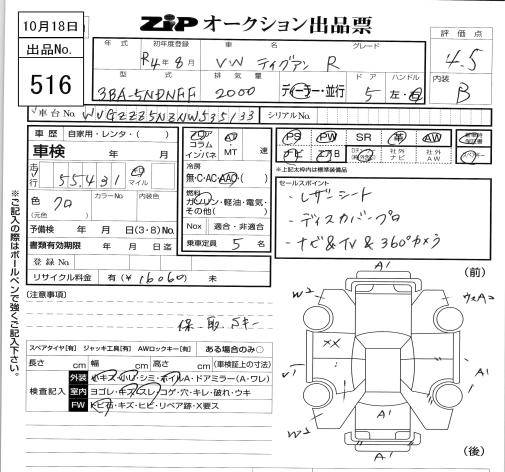 10月18日
出品No.
516
ZIP オークション出品票
評価点
4.5
内装
B
年式 初年度登録 車名 グレード
R4年8月 VW ティグアン R
型式 排気量 ドア ハンドル
3BA-5NDNFF 2000 ディーラー・並行 5 左・右
車台No. WVGZZZ5NZNW535133 シリアルNo.
車歴 自家用・レンタ・( )
車検 年 月
走行 55,431 km マイル
色 クロ
(元色)
カラーNo. 内装色
予備検 年 月 日(3・8)
書類有効期限 年 月 日迄
登録No.
リサイクル料金 有(¥16060) 未
フロア コラム インパネ AT・MT 速
冷房
無・C・AC・AAC
燃料
ガソリン・軽油・電気・その他( )
Nox 適合・非適合
乗車定員 5 名
PS PW SR 革 AW
ナビ エアB 社外ナビ 社外AW
*上記太枠内は標準装備品
セールスポイント
・レザーシート
・ディスカバープロ
・ナビ&TV&360°カメラ
※ご記入の際はボールペンで強くご記入下さい。
(注意事項)
保・取 Sキー
スペアタイヤ[有] ジャッキ工具[有] AWロックキー[有] ある場合のみ○
長さ cm 幅 cm 高さ cm (車検証上の寸法)
検査記入
外装 小キズ・小U・シミ・ホイルA・ドアミラー(A・ワレ)
室内 ヨゴレ・キズ・スレ・コゲ・穴・キレ・破れ・ウキ
FW トビ石・キズ・ヒビ・リペア跡・X要ス
(前)
A1
W2
XX
A1
A1
W2
A1
(後)